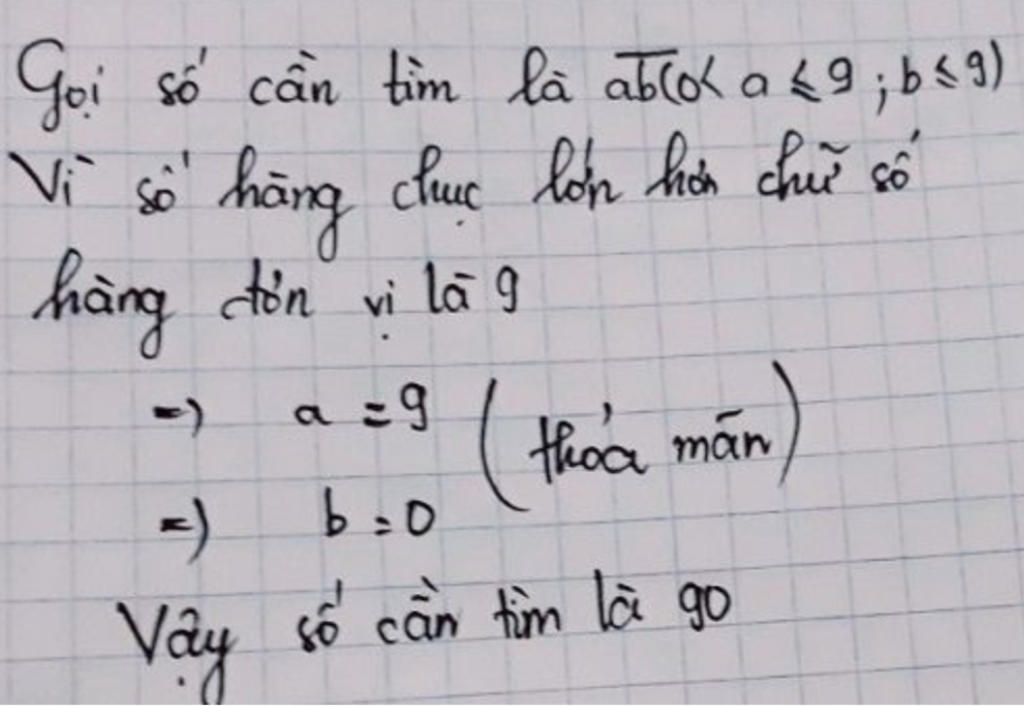 Gọi số cần tìm là ab(0< a ≤ 9 ; b ≤ 9)
Vì số hàng chục lớn hơn chữ số
hàng đơn vị là 9
=) a = 9 (thỏa mãn)
=) b = 0
Vậy số cần tìm là 90